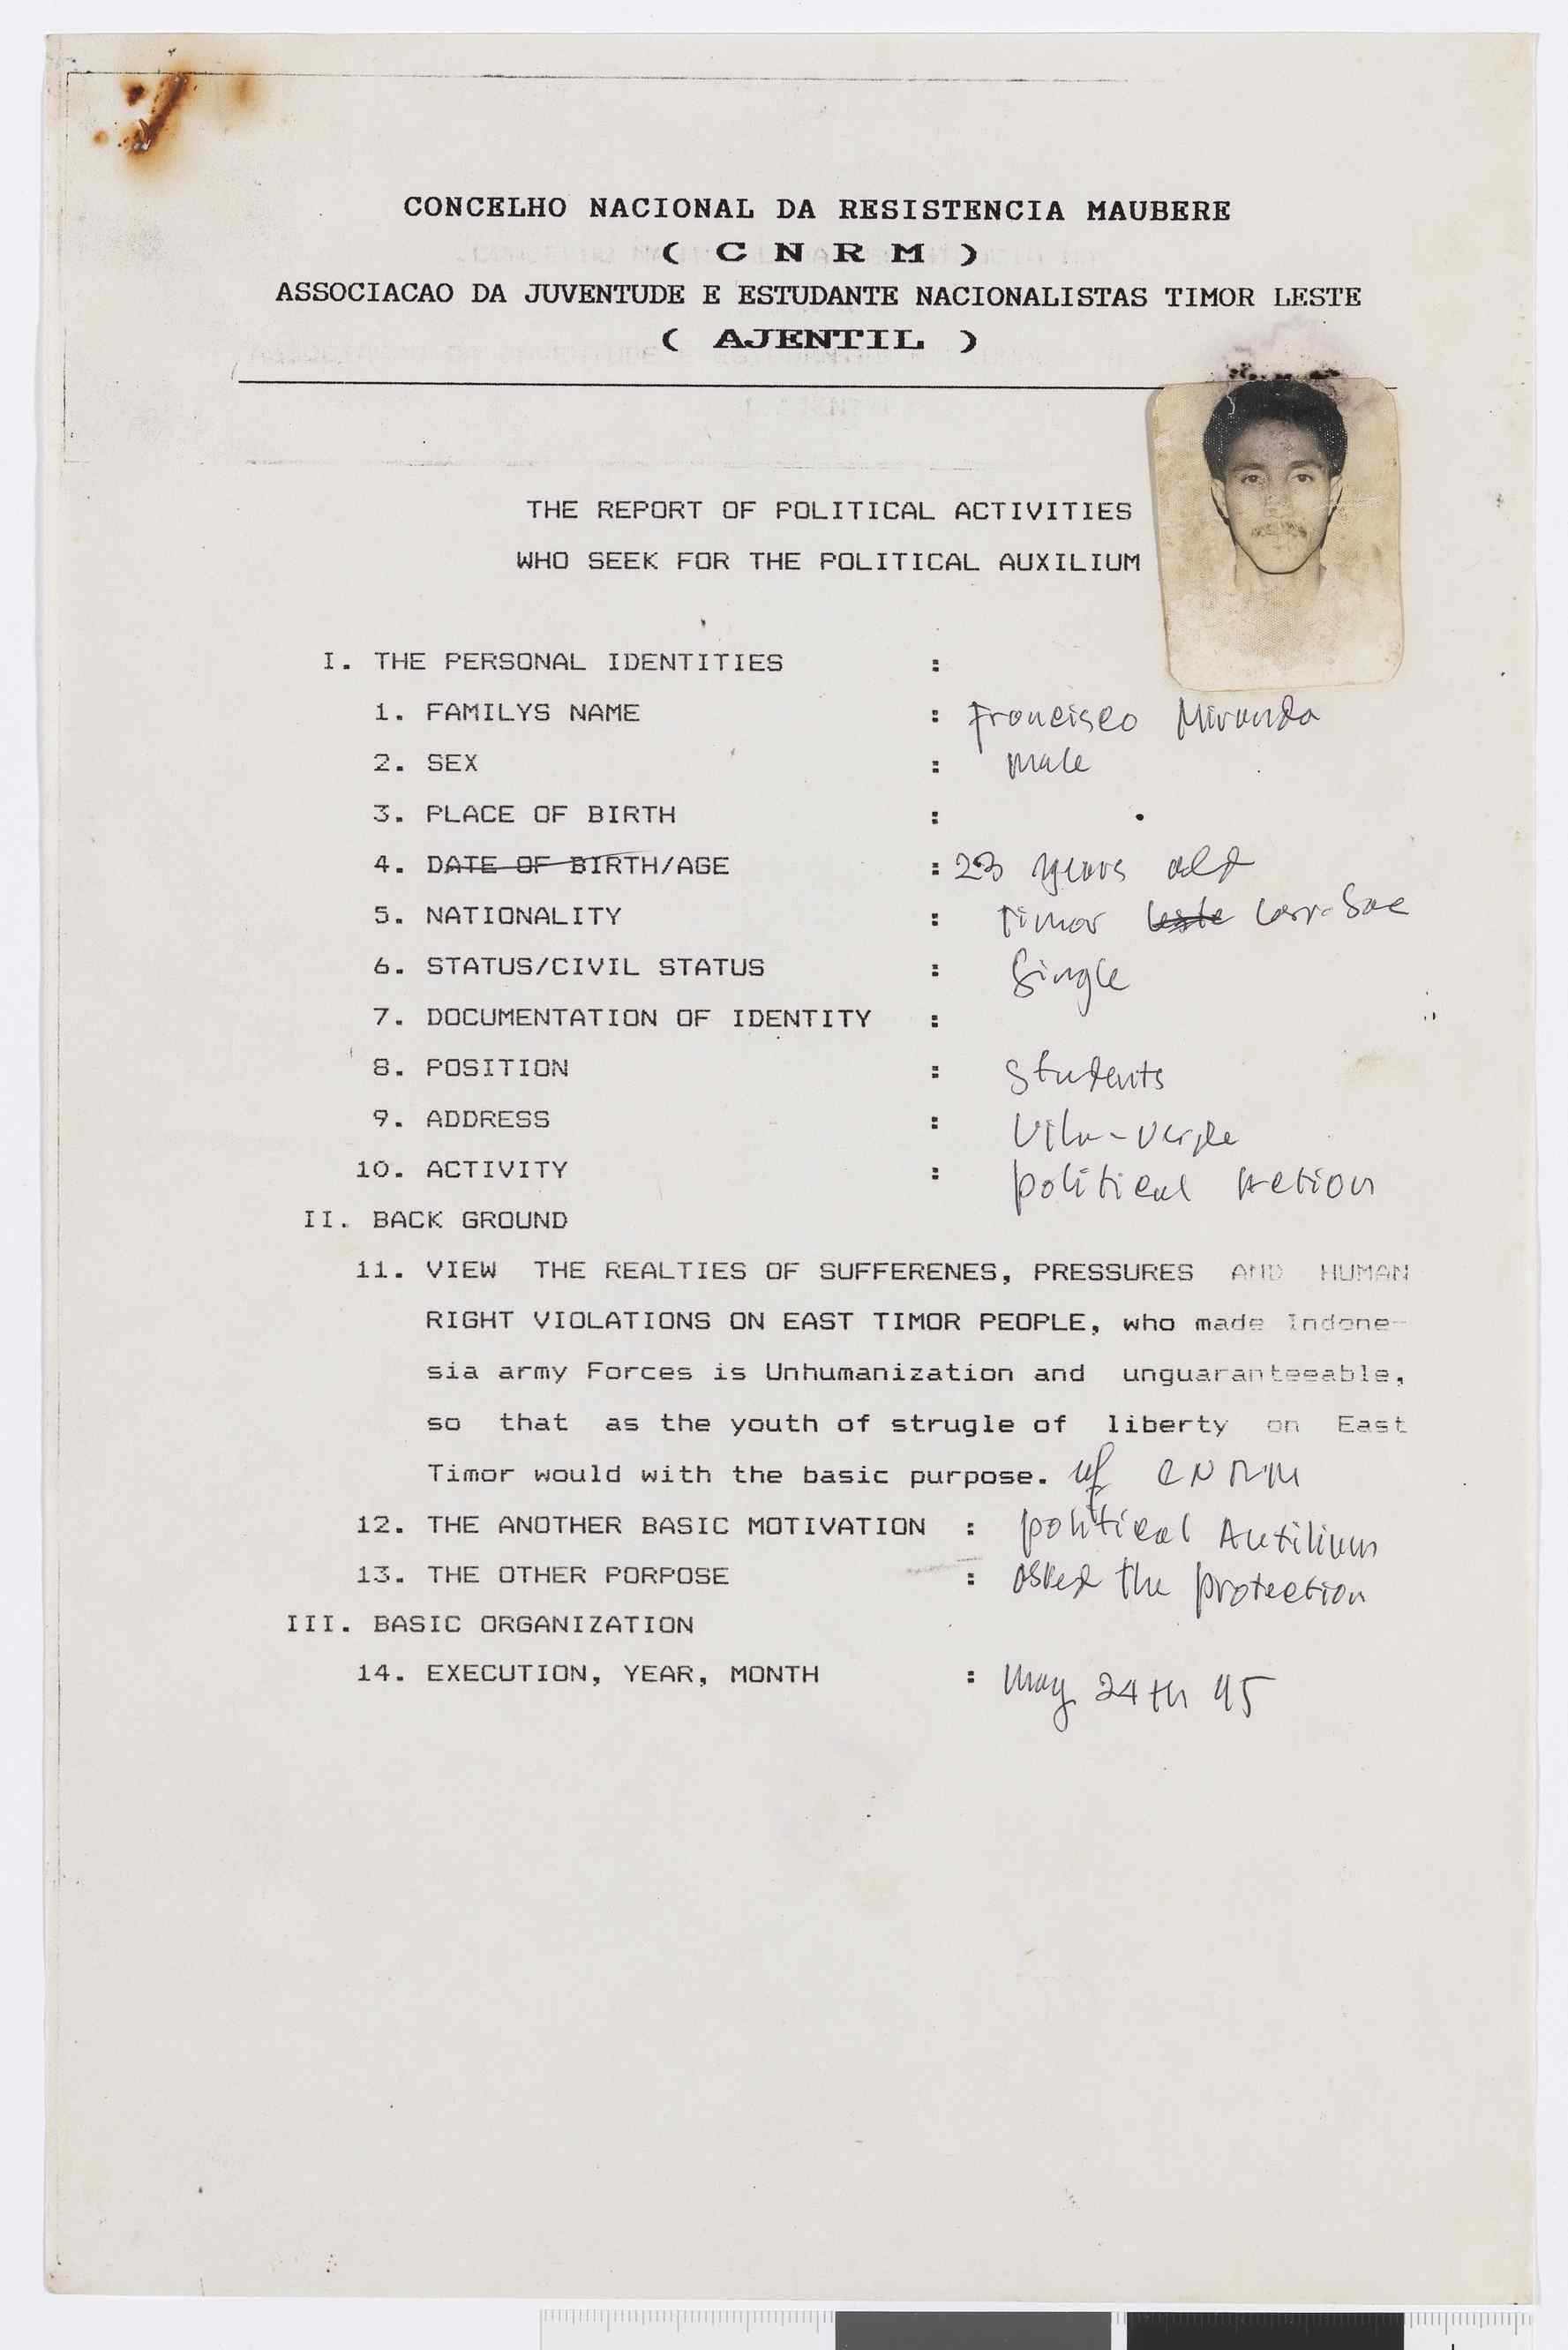 CONCELHO NACIONAL DA RESISTENCIA MAUBERE
( C N R M )
ASSOCIACAO DA JUVENTUDE E ESTUDANTE NACIONALISTAS TIMOR LESTE
( AJENTIL )
THE REPORT OF POLITICAL ACTIVITIES
WHO SEEK FOR THE POLITICAL AUXILIUM
I. THE PERSONAL IDENTITIES :
1. FAMILYS NAME : Francisco Miranda
2. SEX : Male
3. PLACE OF BIRTH :
4. DATE OF BIRTH/AGE : 23 years old
5. NATIONALITY : Timor leste Loro-Sae
6. STATUS/CIVIL STATUS : Single
7. DOCUMENTATION OF IDENTITY :
8. POSITION : Students
9. ADDRESS : Vila-Verde
10. ACTIVITY : political Action
II. BACK GROUND
11. VIEW THE REALTIES OF SUFFERENES, PRESSURES AND HUMAN
RIGHT VIOLATIONS ON EAST TIMOR PEOPLE, who made Indone-
sia army Forces is Unhumanization and unguaranteeable,
so that as the youth of strugle of liberty on East
Timor would with the basic purpose. of CNRM
12. THE ANOTHER BASIC MOTIVATION : political Auxilium
13. THE OTHER PORPOSE : asked the protection
III. BASIC ORGANIZATION
14. EXECUTION, YEAR, MONTH : May 24th 95